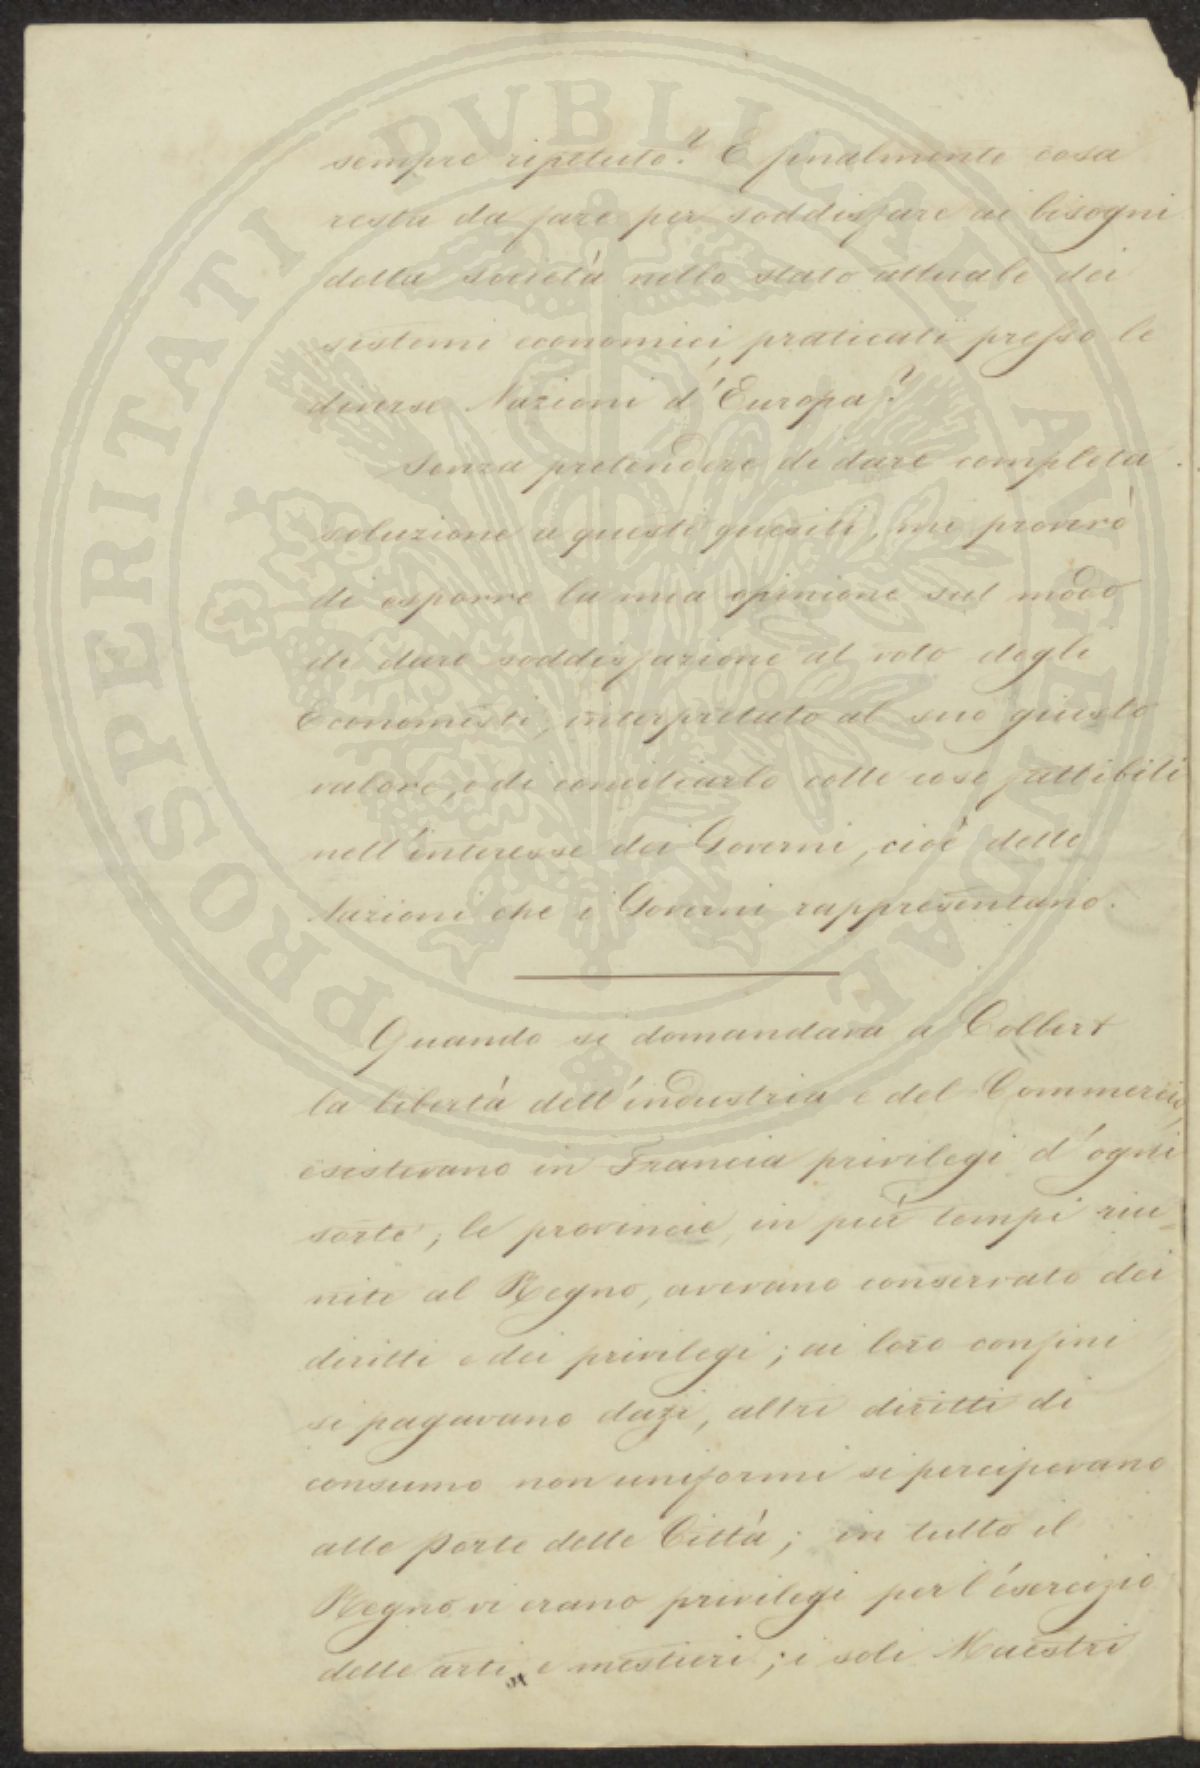 sempre ripetuto? E finalmente cosa
resta da fare per soddisfare ai bisogni
della società nello stato attuale dei
sistemi economici, praticati presso le
diverse Nazioni d'Europa?
Senza pretendere di dare completa
soluzione a questi quesiti, mi proverò
di esporre la mia opinione sul modo
di dare soddisfazione al voto degli
Economisti, interpretato al suo giusto
valore, e di conciliarlo colle cose fattibili
nell'interesse dei Governi, cioè delle
Nazioni che i Governi rappresentano.
Quando si domandava a Colbert
la libertà dell'industria e del Commercio,
esistevano in Francia privilegi d'ogni
sorte; le provincie, in più tempi riu=
nite al Regno, avevano conservato dei
diritti e dei privilegi; ai loro confini
si pagavano dazi, altri diritti di
consumo non uniformi si percipevano
alle porte delle Città; in tutto il
Regno vi erano privilegi per l'esercizio
delle arti e mestieri; i soli Maestri
PROSPERITATI PVBLICAE AVGENDAE